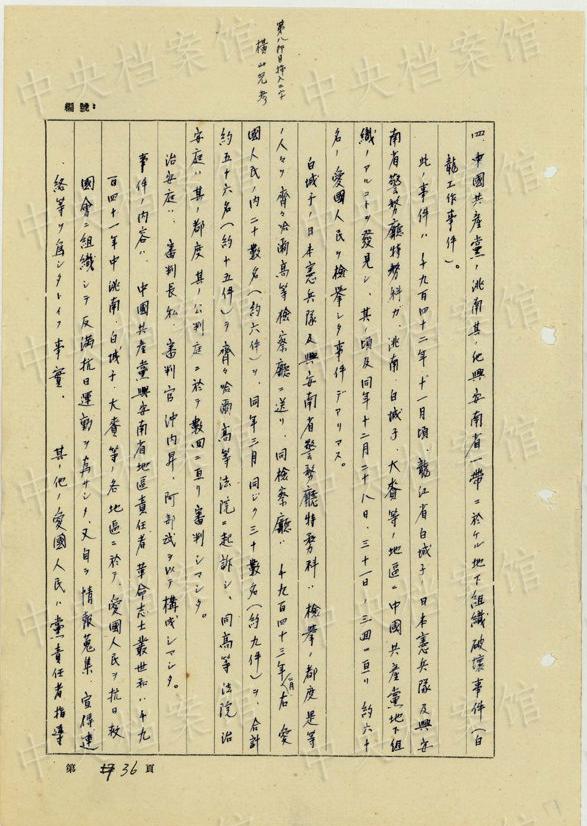 第八行目挿入二字
横山光彦
編號：
四、中國共産黨ノ洮南其ノ他興安南省一帶ニ於ケル地下組織破壞事件（白
龍工作事件）。
此ノ事件ハ、千九百四十二年十一月頃、龍江省白城子ノ日本憲兵隊及興安
南省警務廳特務科ガ、洮南、白城子、大賚等ノ地區ニ中國共産黨地下組
織ノアルコトヲ發見シ、其ノ頃及同年十二月二十八日、三十一日ノ三回ニ亘リ約六十
名ノ愛國人民ヲ檢擧シタ事件デアリマス。
白城子ノ日本憲兵隊及興安南省警務廳特務科ハ、檢擧ノ都度是等
ノ人々ヲ齊々哈爾高等檢察廳ニ送リ、同檢察廳ハ、千九百四十三年二月、右愛
國人民ノ内二十數名（約六件）ヲ、同年三月同ジク三十數名（約九件）ヲ、合計
約五十六名（約十五件）ヲ齊々哈爾高等法院ニ起訴シ、同高等法院治
安庭ハ、其ノ都度、其ノ公判庭ニ於テ數回ニ亘リ審判シマシタ。
治安庭ハ、審判長私、審判官沖内昇、阿部武ヲ以テ構成シマシタ。
事件ノ内容ハ、中國共産黨興安南省地區責任者革命志士叢世和ハ、千九
百四十一年中洮南、白城子、大賚等ノ各地區ニ於テ、愛國人民ヲ抗日救
國會ニ組織シテ反滿抗日運動ヲ爲サシメ、又自ラ情報蒐集、宣傳連
絡等ヲ爲シタトイフ事實、其ノ他ノ愛國人民ハ黨責任者指導
第 36 頁
中央档案馆